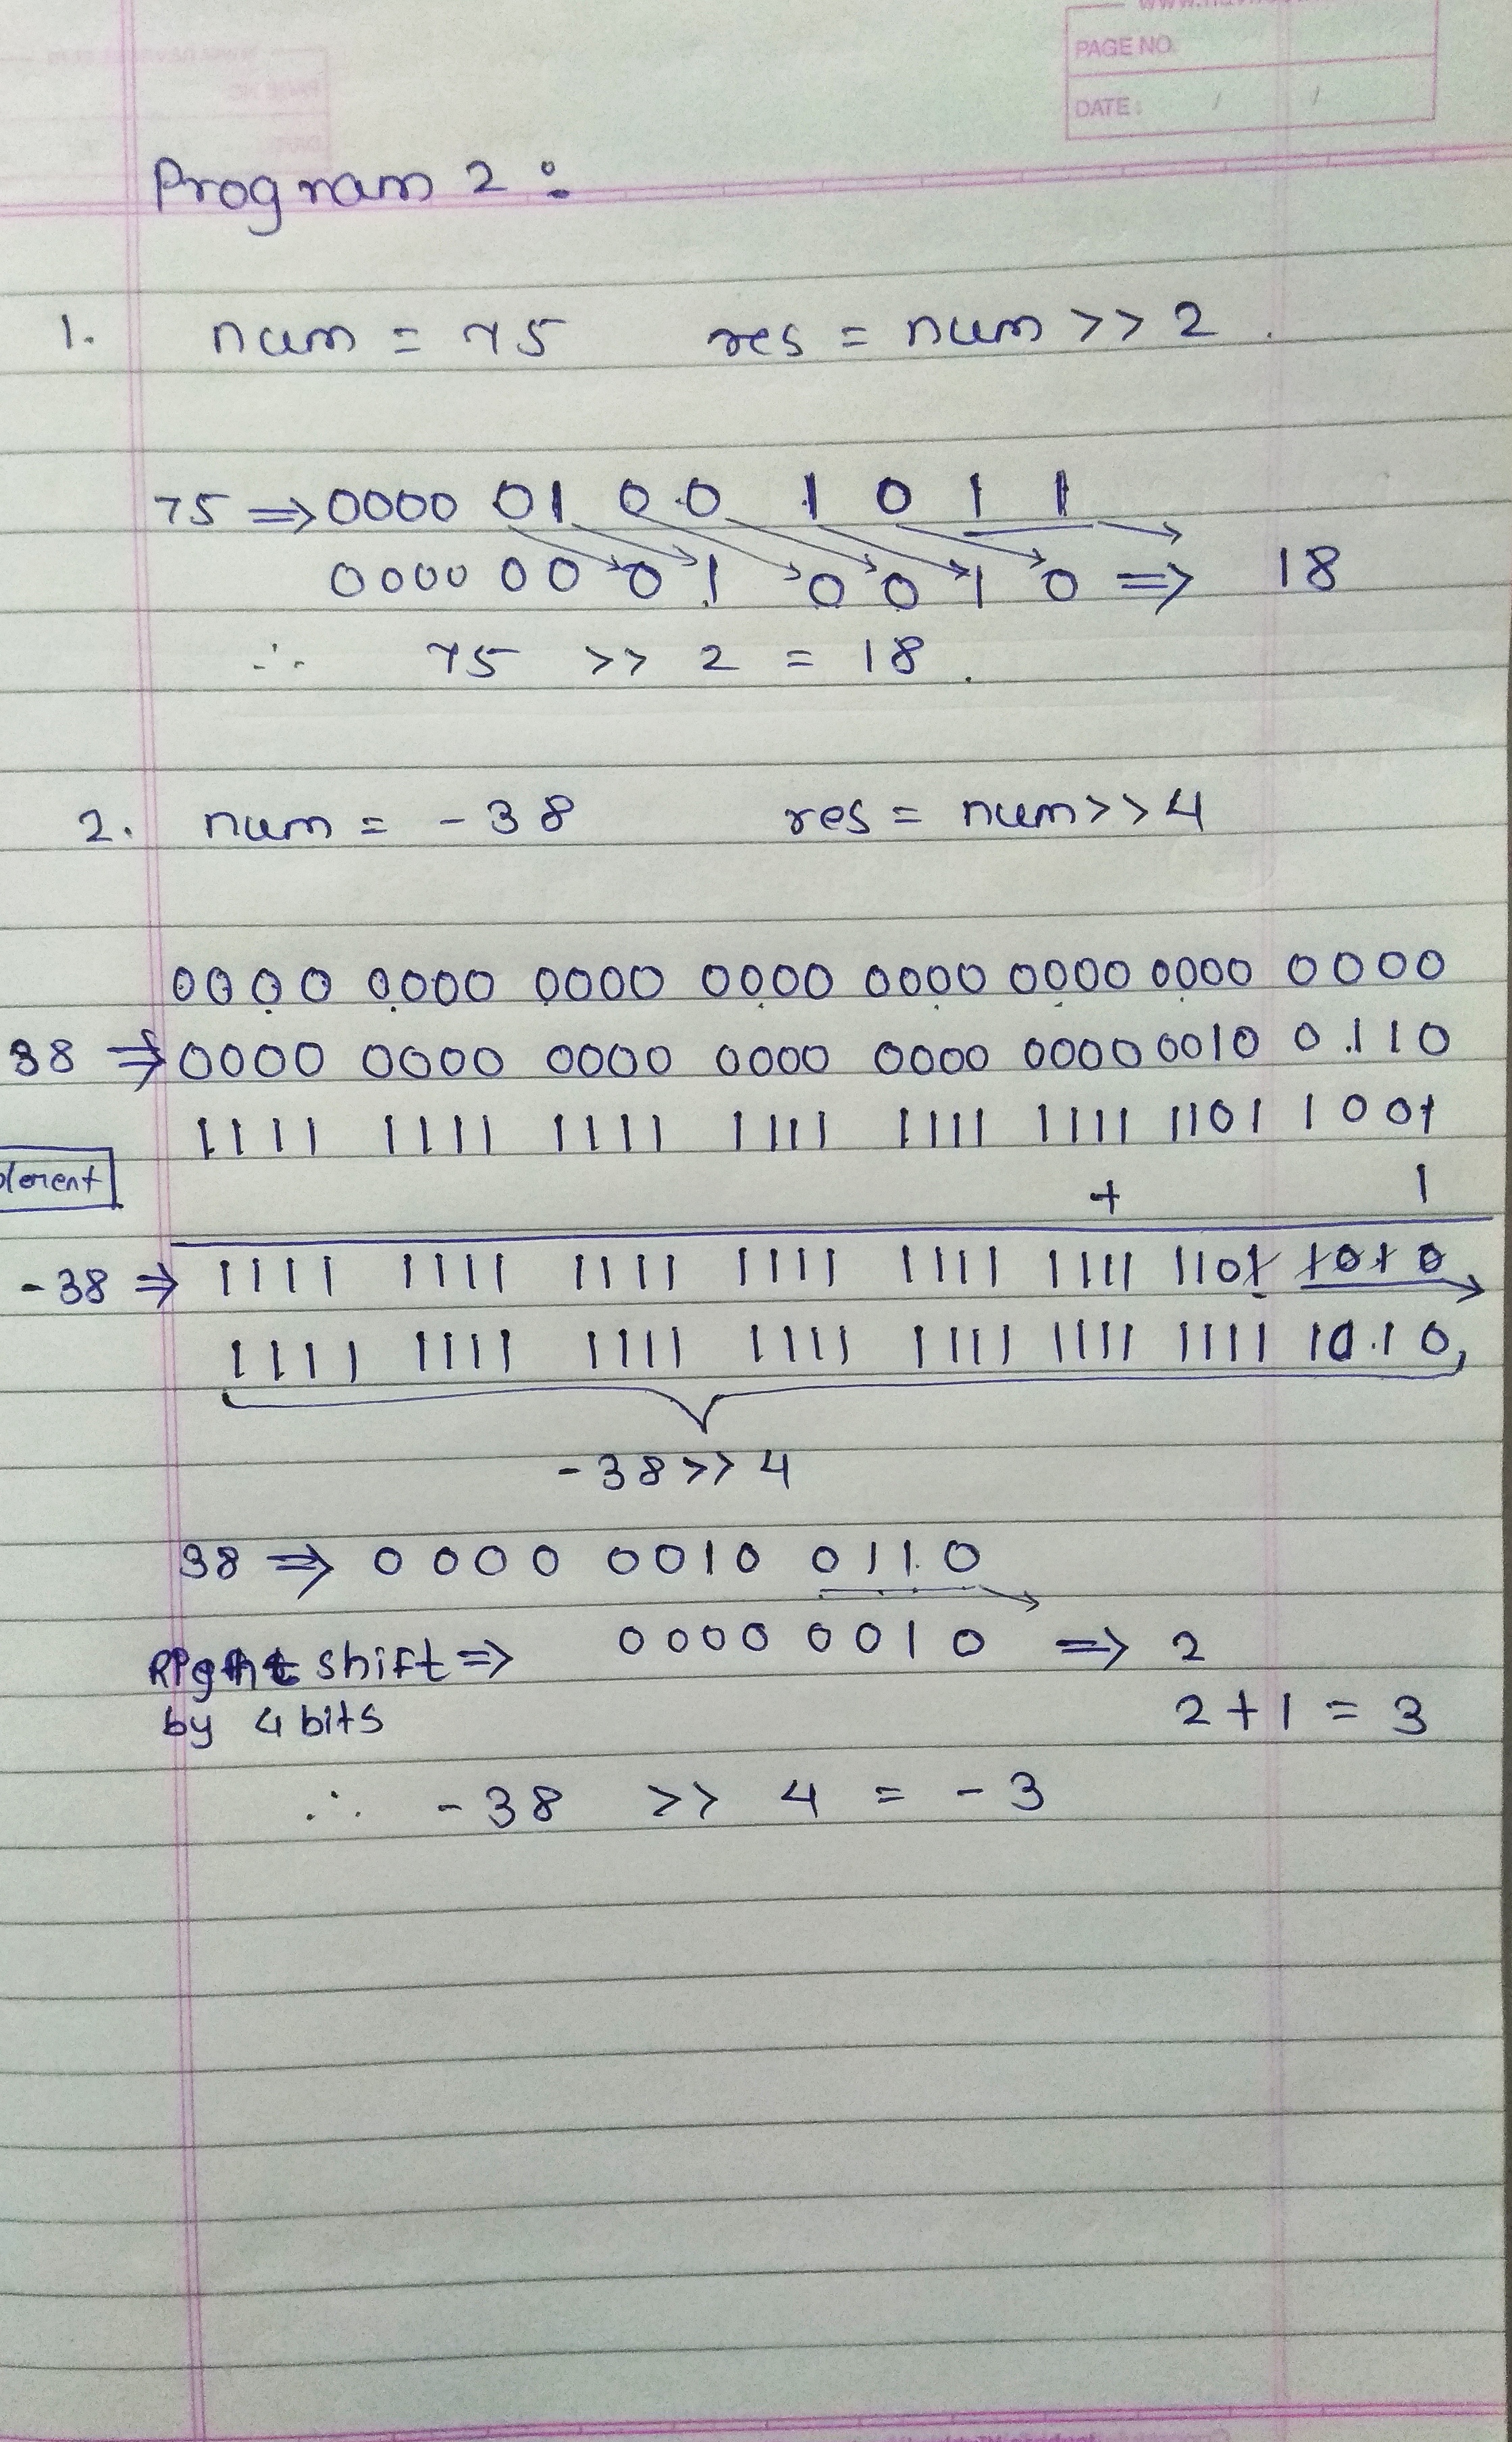 PAGE NO.
DATE: / /
Program 2:
1. num = 75 res = num >> 2.
75 ⇒ 0000 0100 1011
0000 0001 0010 ⇒ 18
∴ 75 >> 2 = 18.
2. num = -38 res = num>>4
0000 0000 0000 0000 0000 0000 0000 0000
38 ⇒ 0000 0000 0000 0000 0000 0000 0010 0110
1111 1111 1111 1111 1111 1111 1101 1001
+ 1
-38 ⇒ 1111 1111 1111 1111 1111 1111 1101 1010
1111 1111 1111 1111 1111 1111 1111 1010,
-38>>4
38 ⇒ 0000 0010 0110
Right shift ⇒ 0000 0010 ⇒ 2
by 4 bits 2+1 = 3
∴ -38 >> 4 = -3